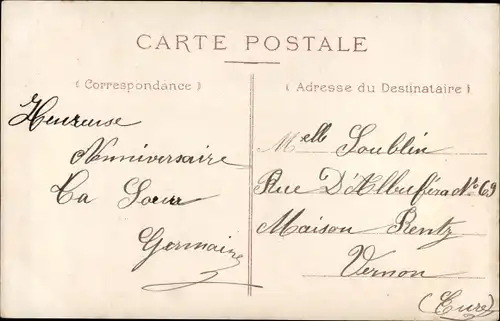 CARTE POSTALE
( Correspondance )
Heureuse
Anniversaire
Ta Soeur
Germaine
( Adresse du Destinataire )
Melle Soublin
Rue D'Albuféra No 69
Maison Rentz
Vernon
(Eure)